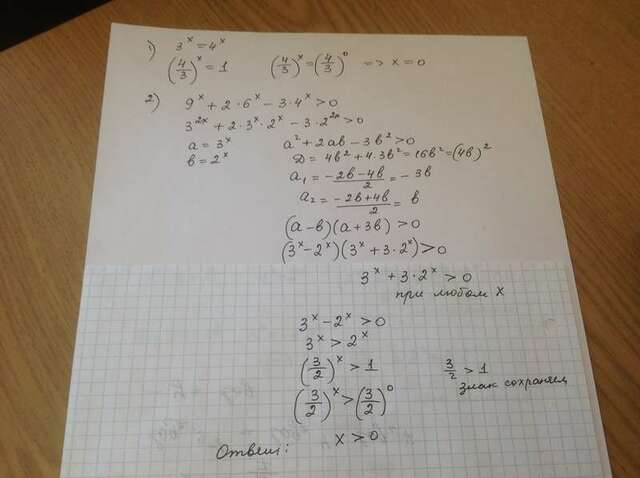 1) 3^x = 4^x
(4/3)^x = 1 (4/3)^x = (4/3)^0 => x = 0
2) 9^x + 2·6^x − 3·4^x > 0
3^2x + 2·3^x·2^x − 3·2^2x > 0
a = 3^x a² + 2ab − 3b² > 0
b = 2^x D = 4b² + 4·3b² = 16b² = (4b)²
a₁ = (−2b − 4b)/2 = −3b
a₂ = (−2b + 4b)/2 = b
(a − b)(a + 3b) > 0
(3^x − 2^x)(3^x + 3·2^x) > 0
3^x + 3·2^x > 0
при любом x
3^x − 2^x > 0
3^x > 2^x
(3/2)^x > 1 3/2 > 1
знак сохраняем
(3/2)^x > (3/2)^0
Ответ: x > 0